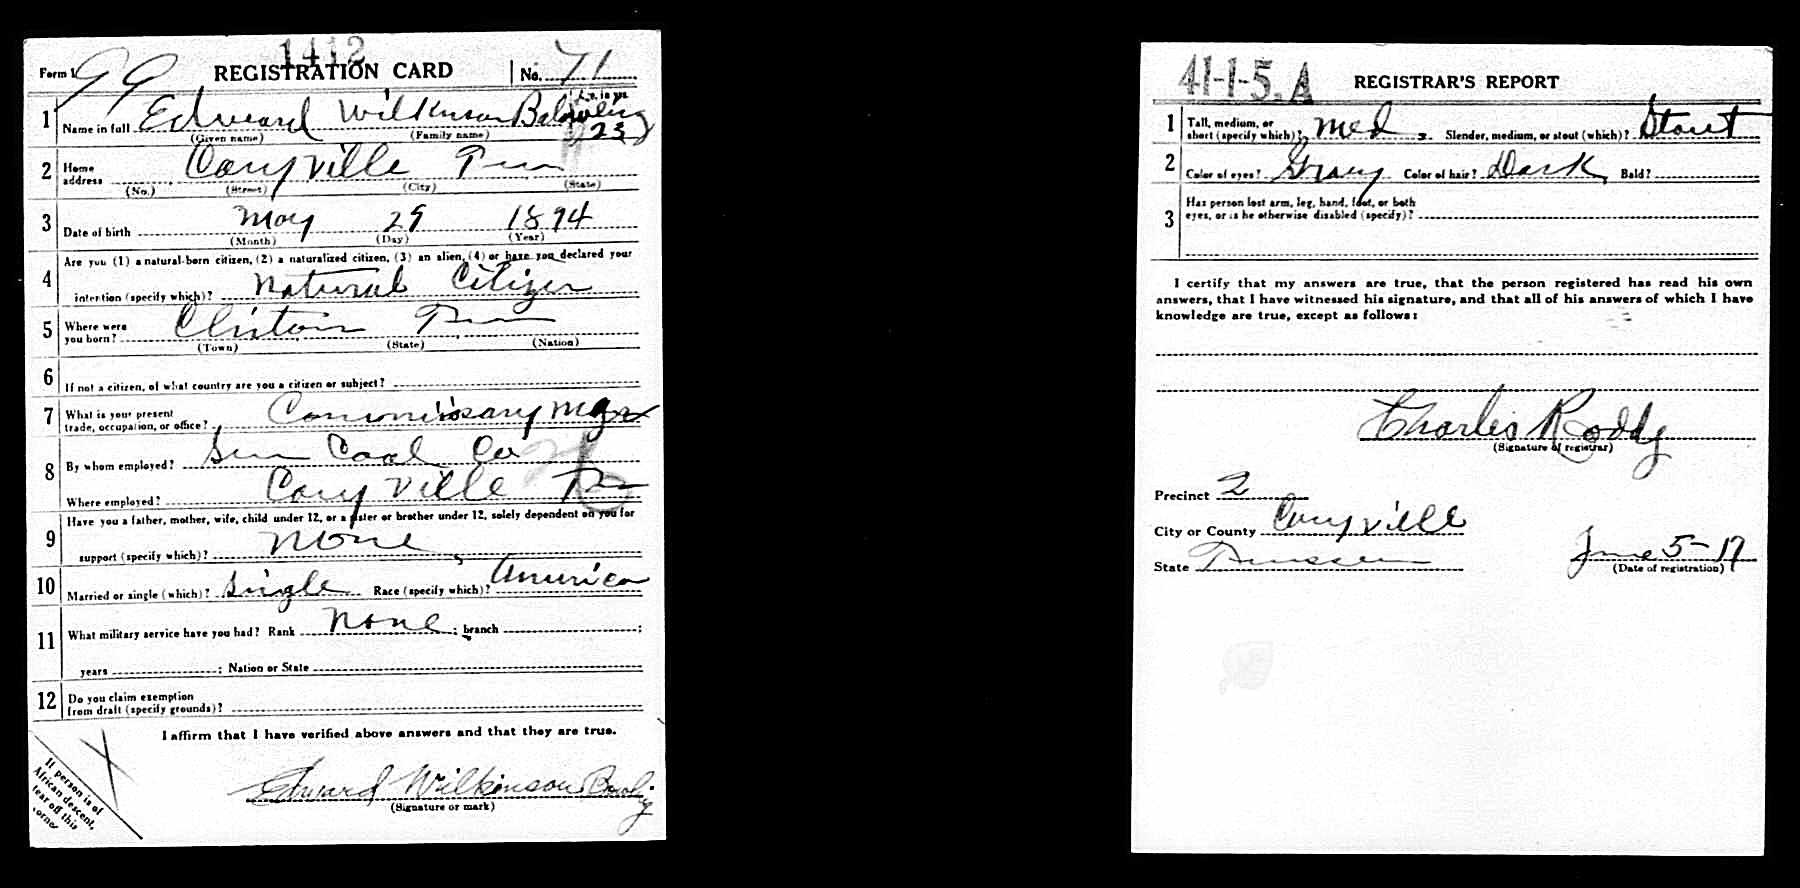 1412
Form 1 REGISTRATION CARD No. 71
Age, in yrs.
1 Name in full Edward Wilkinson 23
(Given name) (Family name)
2 Home address Caryville Tenn
(No.) (Street) (City) (State)
3 Date of birth May 29 1894
(Month) (Day) (Year)
4 Are you (1) a natural-born citizen, (2) a naturalized citizen, (3) an alien, (4) or have you declared your
intention (specify which)? Natural Citizen
5 Where were you born? Clinton Tenn
(Town) (State) (Nation)
6 If not a citizen, of what country are you a citizen or subject?
7 What is your present trade, occupation, or office? Commissary Mgr
8 By whom employed? Sun Coal Co
Where employed? Caryville Tenn
9 Have you a father, mother, wife, child under 12, or a sister or brother under 12, solely dependent on you for
support (specify which)? None
10 Married or single (which)? Single Race (specify which)? American
11 What military service have you had? Rank None ; branch ;
years ; Nation or State
12 Do you claim exemption
from draft (specify grounds)?
I affirm that I have verified above answers and that they are true.
Edward Wilkinson Bowling
(Signature or mark)
If person is of
African descent,
tear off this
corner
41-1-5. A
REGISTRAR'S REPORT
1 Tall, medium, or
short (specify which)? Med Slender, medium, or stout (which)? Stout
2 Color of eyes? Gray Color of hair? Dark Bald?
3 Has person lost arm, leg, hand, foot, or both
eyes, or is he otherwise disabled (specify)?
I certify that my answers are true, that the person registered has read his own
answers, that I have witnessed his signature, and that all of his answers of which I have
knowledge are true, except as follows:
Charles Roddy
(Signature of registrar)
Precinct 2
City or County Caryville
State Tennessee June 5-17
(Date of registration)